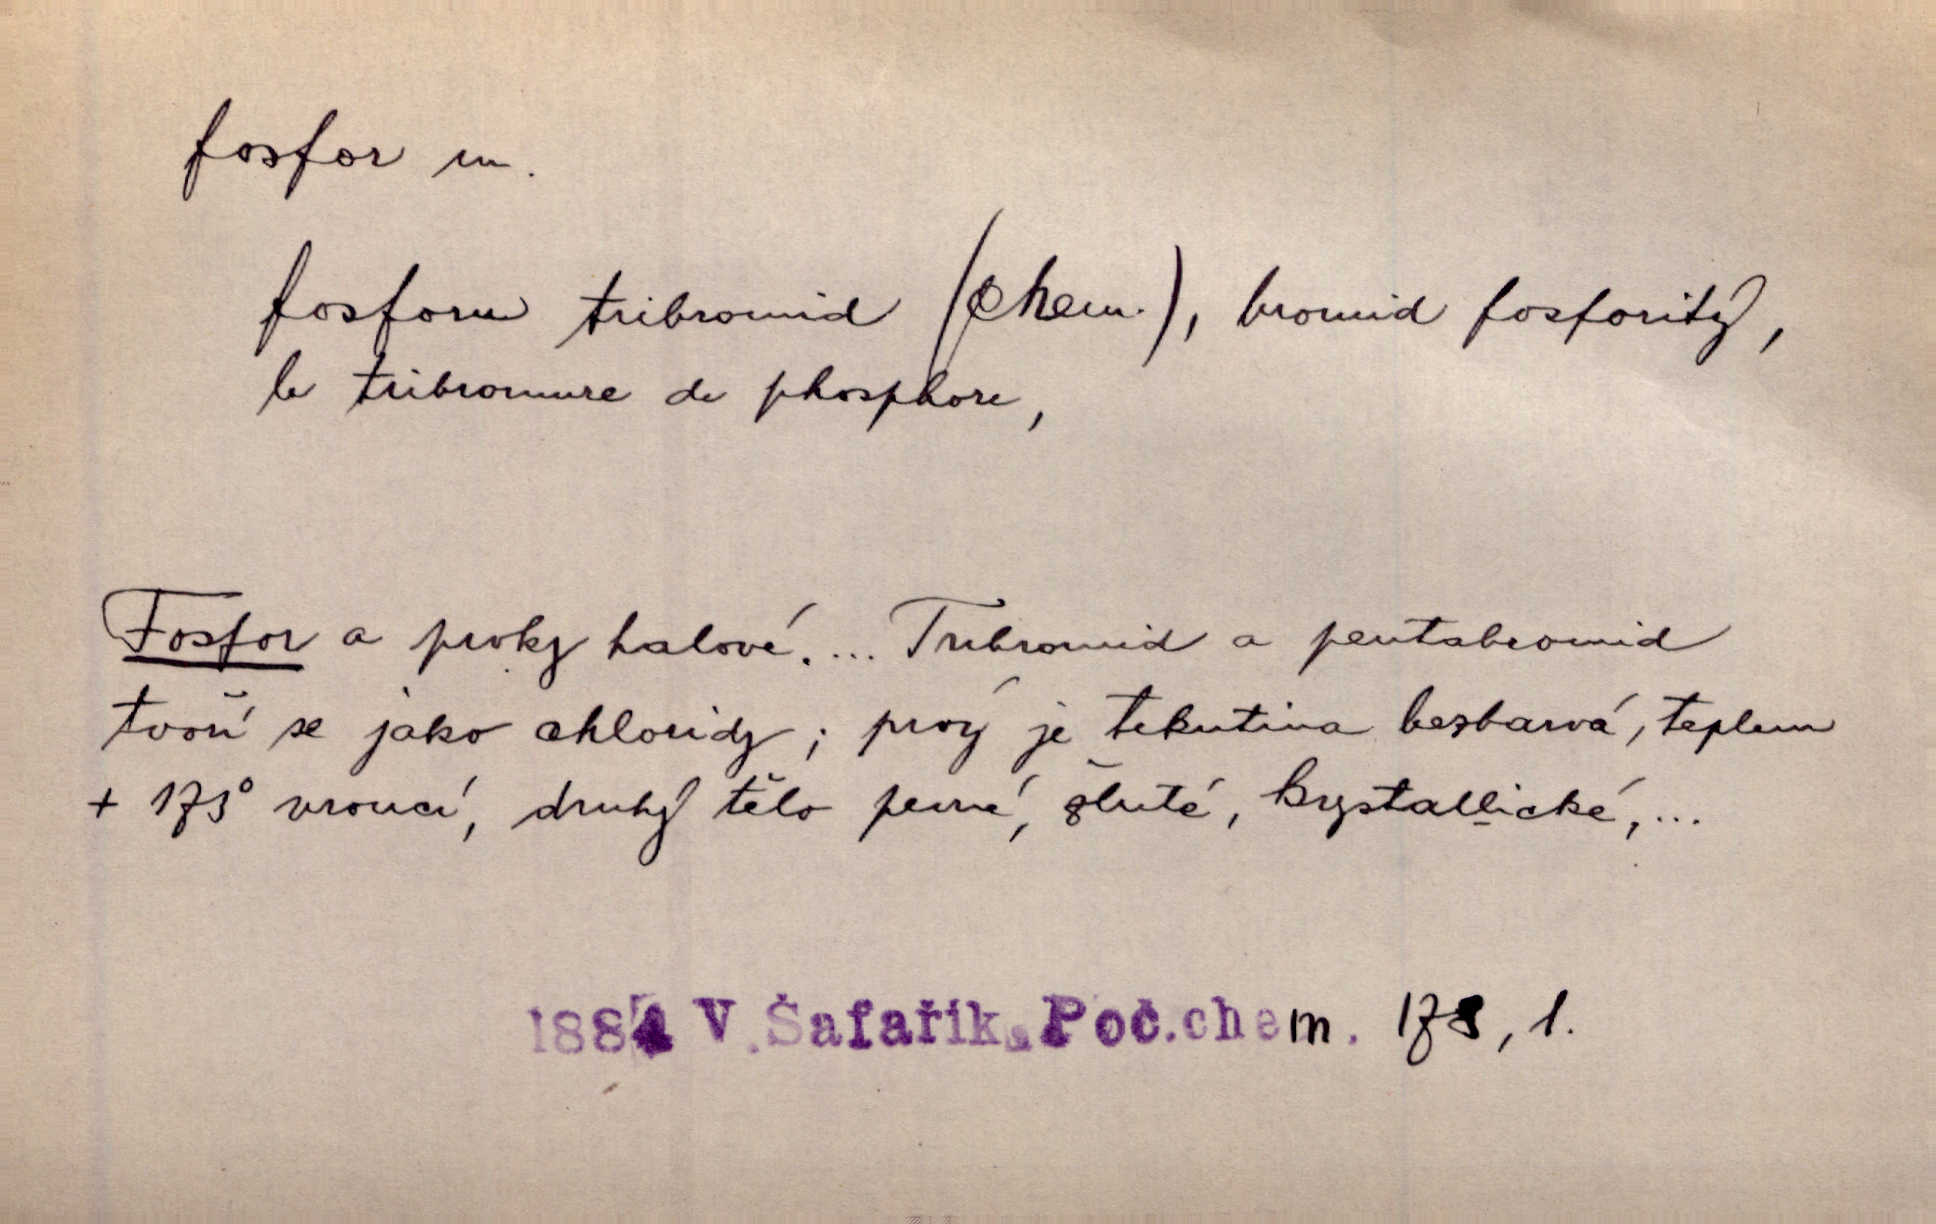 fosfor m.
fosforu tribromid (chem.), bromid fosforitý,
le tribromure de phosphore,
Fosfor a prvky halové. ... Tribromid a pentabromid
tvoří se jako chloridy; prvý je tekutina bezbarvá, teplem
+ 173° vroucí, druhý tělo pevné, žluté, krystallické, ...
1884 V. Šafařík, Poč.chem. 178, 1.